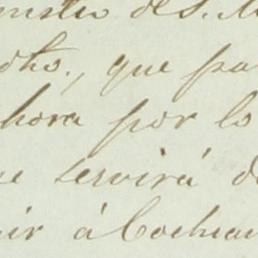 nister de S. M
dho., que pa
hora por lo
e servirá d
ir á Cochran